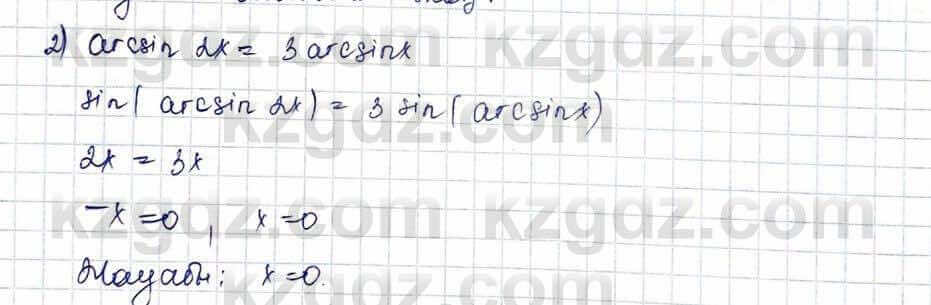 2) arcsin 2x = 3 arcsinx
sin( arcsin 2x) = 3 sin( arcsinx)
2x = 3x
-x = 0, x = 0
Жауабы: x = 0.
kzgdz.com kzgdz.com
kzgdz.com
kzgdz.com kzgdz.com
kzgdz.com